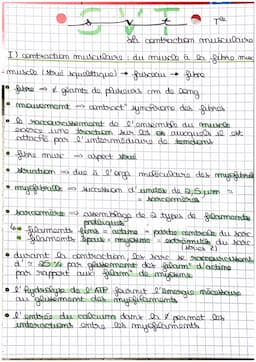 S V T
Tle
La contraction musculaire
I) contraction musculaire : du muscle à la fibre mus
muscle (strié squelettique) → faisceau → fibre
• fibre → ¢ géante de plusieurs cm de long
• mouvement → contract° synchrone des fibres
• le raccourcissement de l'ensemble du muscle
exerce une traction sur les os auxquels il est
attaché par l'intermédiaire de tendons
• fibre musc → aspect strié
• striation → due à l'orga moléculaire des myofibrilles
• myofibrille → succession d'unités de 2,5 µm =
= sarcomères
• sarcomère → assemblage de 2 types de filaments
protéiques :
filaments fins = actine = partie centrale du sarc
filaments épais = myosine = extrémités du sarc
• durant la contraction, les sarc se raccourcissent
d' ≈ 25 % par glissement des filam' d'actine
par rapport aux filam' de myosine
• l'hydrolyse de l'ATP fournit l'énergie nécessaire
au glissement des myofilaments
• l'entrée du calcium dans la ¢ permet les
interactions entre les myofilaments